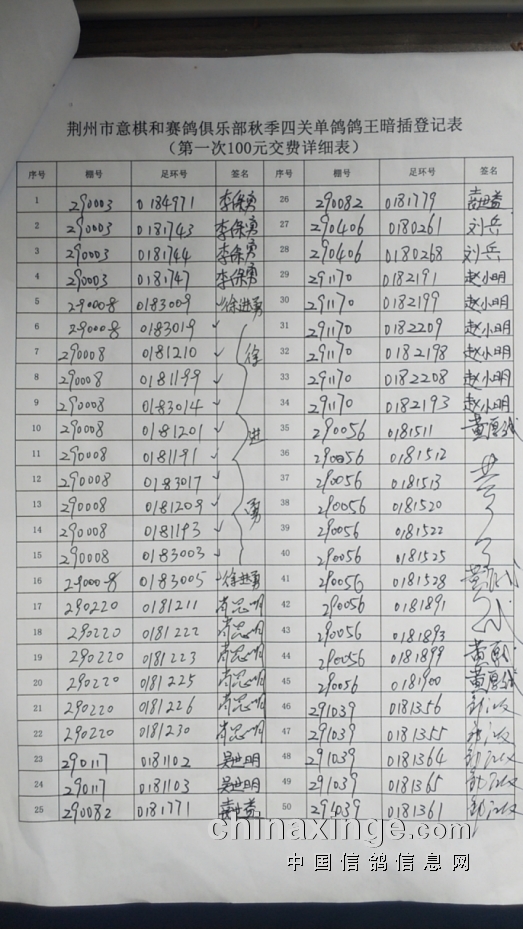 荆州市意棋和赛鸽俱乐部秋季四关单鸽鸽王暗插登记表
（第一次100元交费详细表）
序号 棚号 足环号 签名 序号 棚号 足环号 签名
1 290003 0184971 26 290082 0181779
2 290003 0181743 27 290406 0180261 刘兵
3 290003 0181744 28 290406 0180268 刘兵
4 290003 0181747 29 291170 0182191 赵小明
5 290008 0183009 徐进勇 30 291170 0182199 赵小明
6 290008 0183019 31 291170 0182209 赵小明
7 290008 0181210 徐 32 291170 0182198 赵小明
8 290008 0181199 33 291170 0182208 赵小明
9 290008 0183014 34 291170 0182193 赵小明
10 290008 0181201 进 35 290056 0181511
11 290008 0181191 36 290056 0181512
12 290008 0183017 37 290056 0181513
13 290008 0181209 勇 38 290056 0181520
14 290008 0181193 39 290056 0181522
15 290008 0183003 40 290056 0181525
16 290008 0183005 徐进勇 41 290056 0181528
17 290220 0181211 42 290056 0181891
18 290220 0181222 43 290056 0181893
19 290220 0181223 44 290056 0181899
20 290220 0181225 45 290056 0181900
21 290220 0181226 46 291039 0181356
22 290220 0181230 47 291039 0181355
23 290117 0181102 48 291039 0181364
24 290117 0181103 49 291039 0181365
25 290082 0181771 50 291039 0181361
chinaxinge.com
中国信鸽信息网